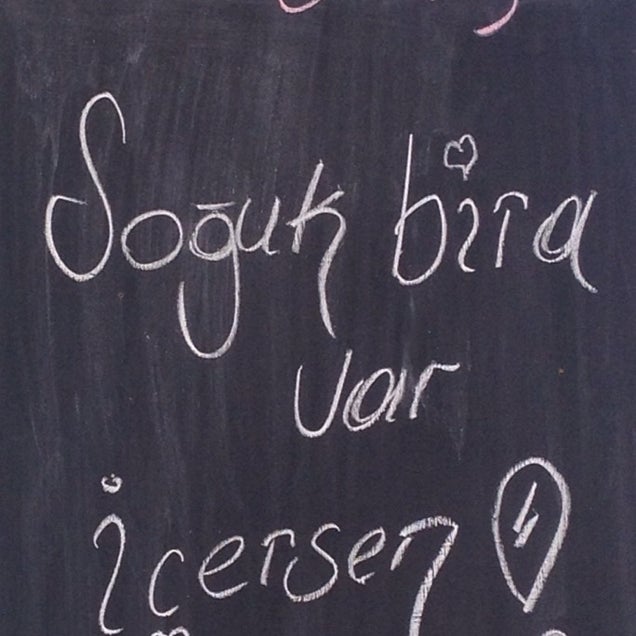 Soğuk bira
var
içersen